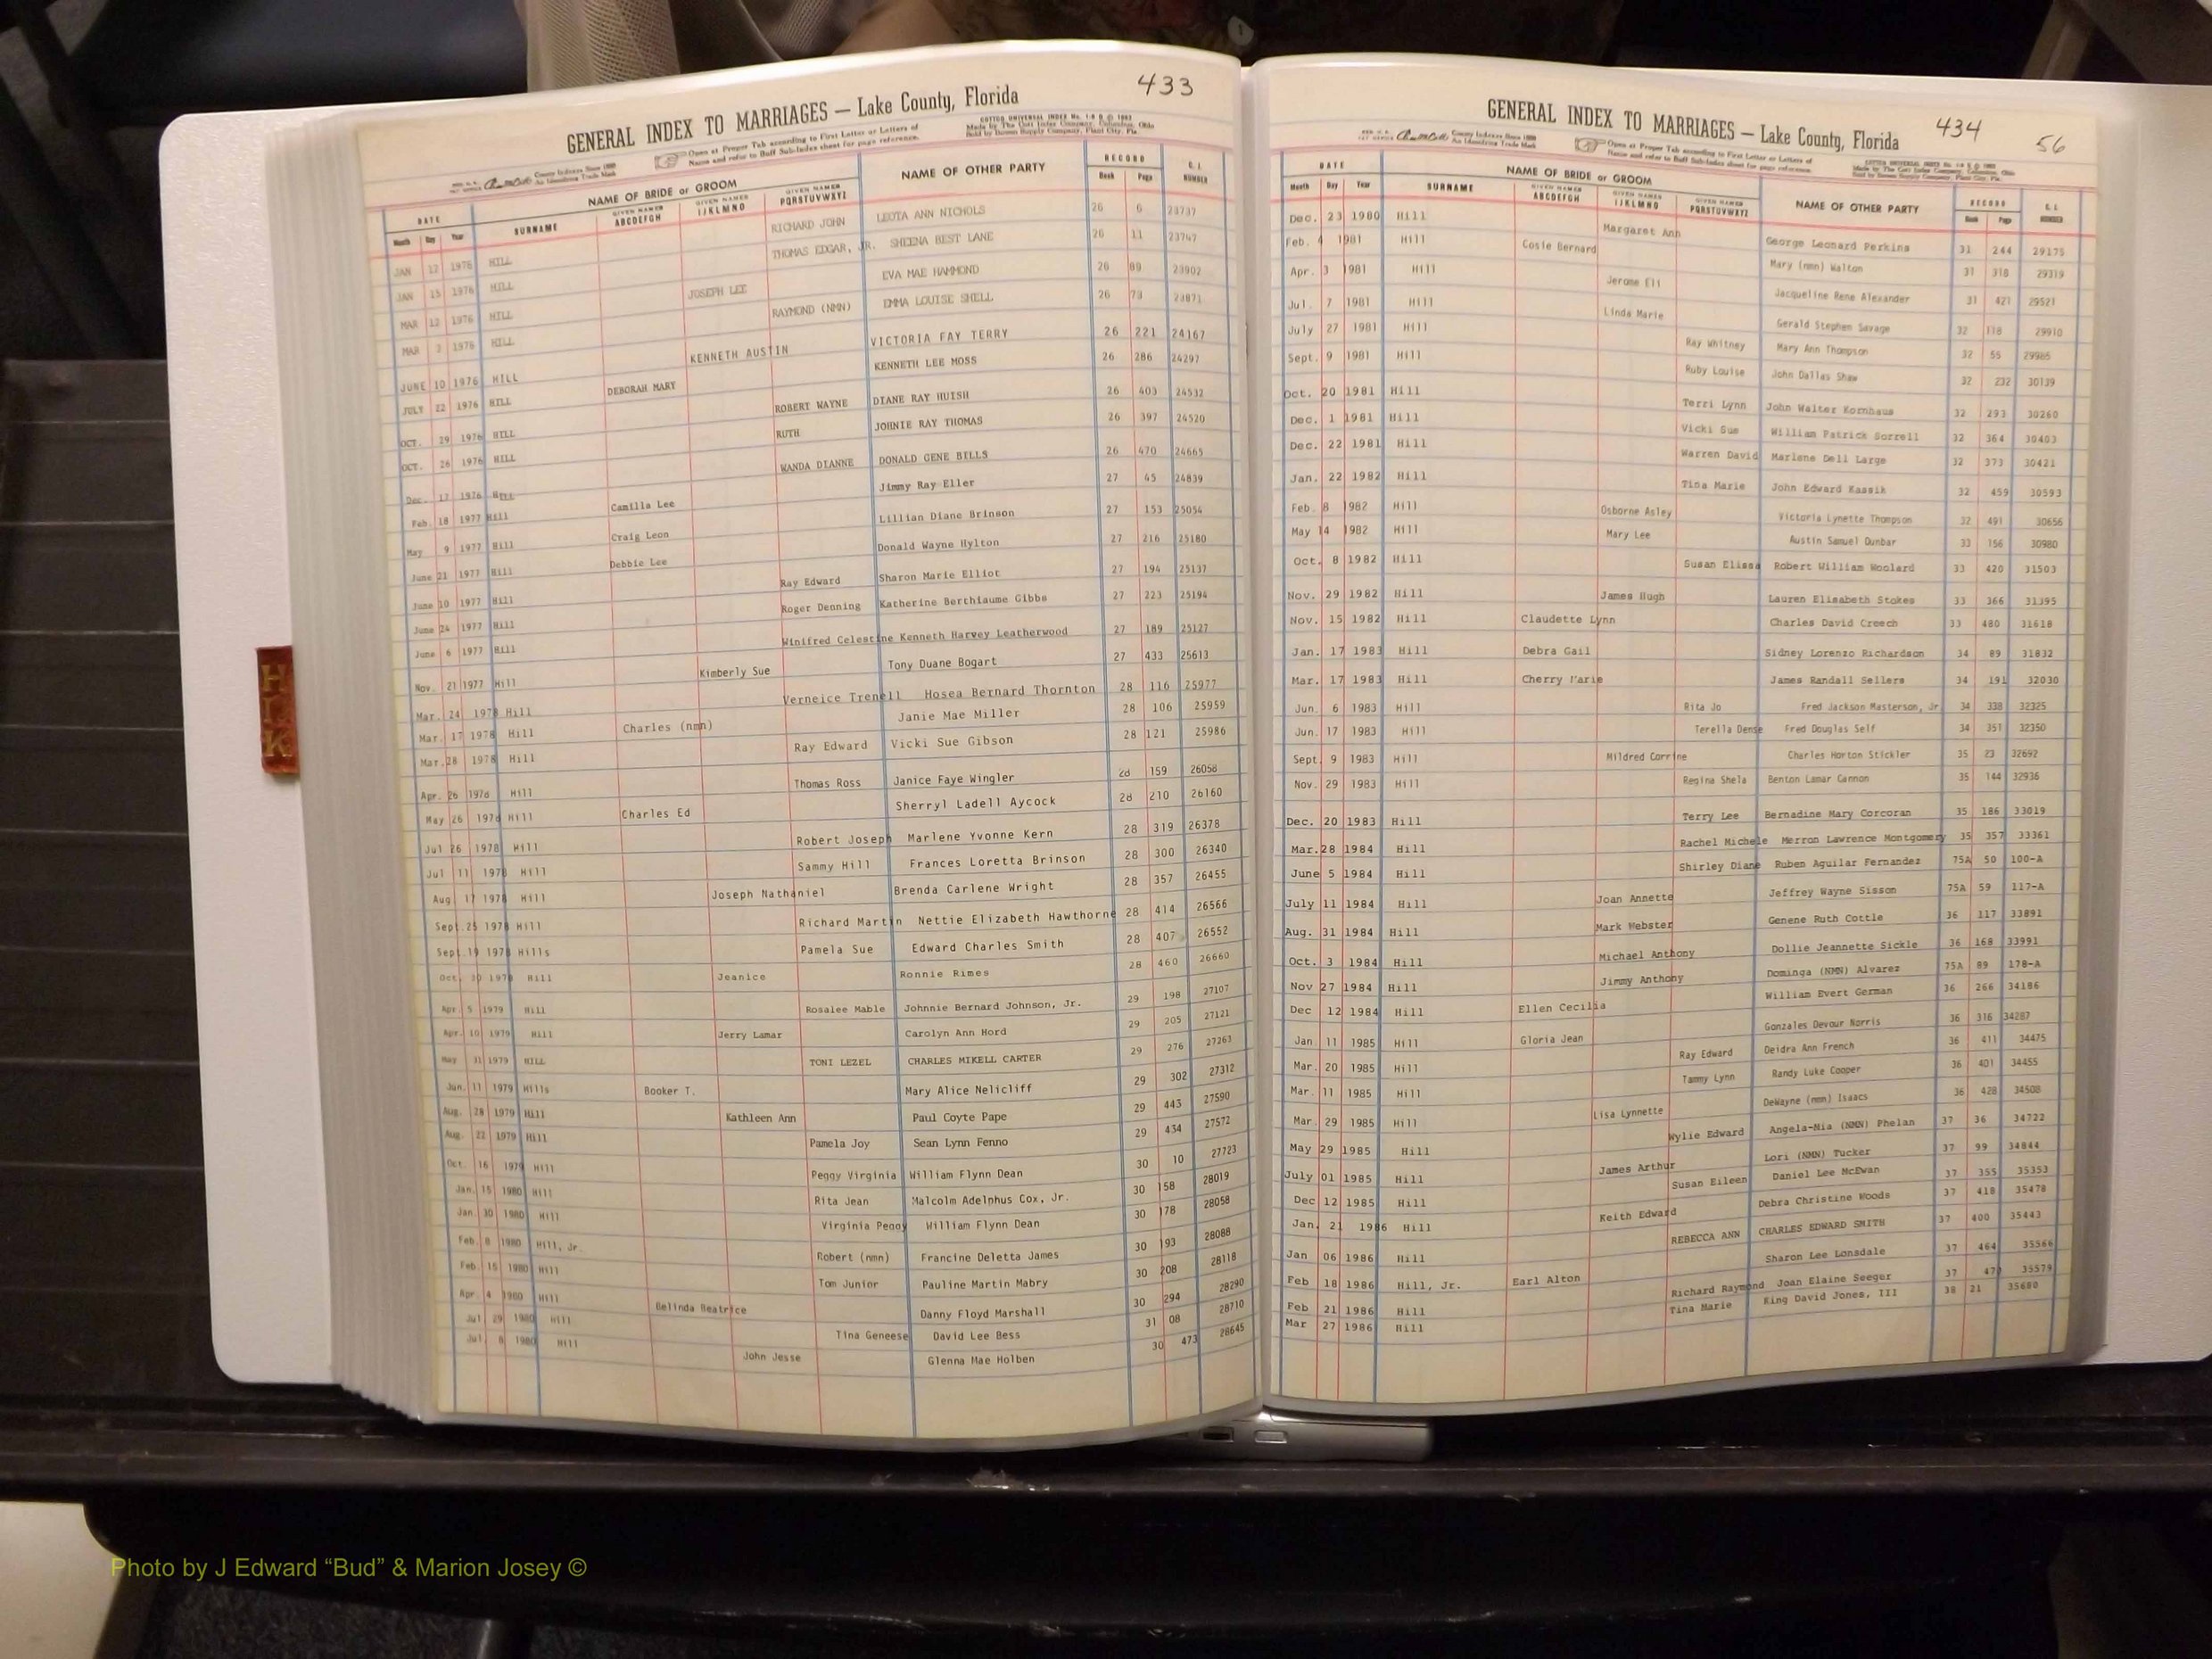 433
GENERAL INDEX TO MARRIAGES — Lake County, Florida
County Indexes Since 1888
An Identifying Trade Mark
Open at Proper Tab according to First Letter or Letters of
Name and refer to Buff Sub-Index sheet for page reference.
Made by The Cott Index Company, Columbus, Ohio
DATE NAME OF BRIDE or GROOM NAME OF OTHER PARTY RECORD G. I.
Month Day Year SURNAME GIVEN NAMES ABCDEFGH GIVEN NAMES IJKLMNO GIVEN NAMES PQRSTUVWXYZ Book Page NUMBER
JAN 12 1976 HILL RICHARD JOHN LEOTA ANN NICHOLS 26 6 23737
JAN 15 1976 HILL THOMAS EDGAR, JR. SHEENA BEST LANE 26 11 23747
MAR 12 1976 HILL JOSEPH LEE EVA MAE HAMMOND 26 89 23902
MAR 2 1976 HILL RAYMOND (NMN) EMMA LOUISE SHELL 26 73 23871
JUNE 10 1976 HILL KENNETH AUSTIN VICTORIA FAY TERRY 26 221 24167
JULY 22 1976 HILL DEBORAH MARY KENNETH LEE MOSS 26 286 24297
OCT. 29 1976 HILL ROBERT WAYNE DIANE RAY HUISH 26 403 24532
OCT. 26 1976 HILL RUTH JOHNIE RAY THOMAS 26 397 24520
Dec. 17 1976 Hill WANDA DIANNE DONALD GENE BILLS 26 470 24665
Feb. 18 1977 Hill Camilla Lee Jimmy Ray Eller 27 45 24839
May 9 1977 Hill Craig Leon Lillian Diane Brinson 27 153 25054
June 21 1977 Hill Debbie Lee Donald Wayne Hylton 27 216 25180
June 10 1977 Hill Ray Edward Sharon Marie Elliot 27 194 25137
June 24 1977 Hill Roger Denning Katherine Berthiaume Gibbs 27 223 25194
June 6 1977 Hill Winifred Celestine Kenneth Harvey Leatherwood 27 189 25127
Nov. 21 1977 Hill Kimberly Sue Tony Duane Bogart 27 433 25613
Mar. 24 1978 Hill Verneice Trenell Hosea Bernard Thornton 28 116 25977
Mar. 17 1978 Hill Charles (nmn) Janie Mae Miller 28 106 25959
Mar. 28 1978 Hill Ray Edward Vicki Sue Gibson 28 121 25986
Apr. 26 1978 Hill Thomas Ross Janice Faye Wingler 28 159 26058
May 26 1978 Hill Charles Ed Sherryl Ladell Aycock 28 210 26160
Jul 26 1978 Hill Robert Joseph Marlene Yvonne Kern 28 319 26378
Jul 11 1978 Hill Sammy Hill Frances Loretta Brinson 28 300 26340
Aug 17 1978 Hill Joseph Nathaniel Brenda Carlene Wright 28 357 26455
Sept. 25 1978 Hill Richard Martin Nettie Elizabeth Hawthorne 28 414 26566
Sept. 19 1978 Hills Pamela Sue Edward Charles Smith 28 407 26552
Oct. 30 1978 Hill Jeanice Ronnie Rimes 28 460 26660
Apr. 5 1979 Hill Rosalee Mable Johnnie Bernard Johnson, Jr. 29 198 27107
Apr. 10 1979 Hill Jerry Lamar Carolyn Ann Hord 29 205 27121
May 31 1979 HILL TONI LEZEL CHARLES MIKELL CARTER 29 276 27263
Jun. 11 1979 Hills Booker T. Mary Alice Nelicliff 29 302 27312
Aug. 28 1979 Hill Kathleen Ann Paul Coyte Pape 29 443 27590
Aug. 22 1979 Hill Pamela Joy Sean Lynn Fenno 29 434 27572
Oct. 16 1979 Hill Peggy Virginia William Flynn Dean 30 10 27723
Jan. 15 1980 Hill Rita Jean Malcolm Adelphus Cox, Jr. 30 158 28019
Jan. 30 1980 Hill Virginia Peggy William Flynn Dean 30 178 28058
Feb. 8 1980 Hill, Jr. Robert (nmn) Francine Deletta James 30 193 28088
Feb. 15 1980 Hill Tom Junior Pauline Martin Mabry 30 208 28118
Apr. 4 1980 Hill Belinda Beatrice Danny Floyd Marshall 30 294 28290
Jul 29 1980 Hill Tina Geneese David Lee Bess 31 08 28710
Jul. 8 1980 Hill John Jesse Glenna Mae Holben 30 473 28645
434 56
GENERAL INDEX TO MARRIAGES — Lake County, Florida
County Indexes Since 1888
An Identifying Trade Mark
Open at Proper Tab according to First Letter or Letters of
Name and refer to Buff Sub-Index sheet for page reference.
DATE NAME OF BRIDE or GROOM NAME OF OTHER PARTY RECORD G. I.
Month Day Year SURNAME GIVEN NAMES ABCDEFGH GIVEN NAMES IJKLMNO GIVEN NAMES PQRSTUVWXYZ Book Page NUMBER
Dec. 23 1980 Hill Margaret Ann George Leonard Perkins 31 244 29175
Feb. 4 1981 Hill Cosie Bernard Mary (nmn) Walton 31 318 29319
Apr. 3 1981 Hill Jerome Eli Jacqueline Rene Alexander 31 421 29521
Jul. 7 1981 Hill Linda Marie Gerald Stephen Savage 32 118 29910
July 27 1981 Hill Ray Whitney Mary Ann Thompson 32 55 29985
Sept. 9 1981 Hill Ruby Louise John Dallas Shaw 32 232 30139
Oct. 20 1981 Hill Terri Lynn John Walter Kornhaus 32 293 30260
Dec. 1 1981 Hill Vicki Sue William Patrick Sorrell 32 364 30403
Dec. 22 1981 Hill Warren David Marlene Dell Large 32 373 30421
Jan. 22 1982 Hill Tina Marie John Edward Kassih 32 459 30593
Feb. 8 1982 Hill Osborne Asley Victoria Lynette Thompson 32 491 30656
May 14 1982 Hill Mary Lee Austin Samuel Dunbar 33 156 30980
Oct. 8 1982 Hill Susan Elissa Robert William Woolard 33 420 31503
Nov. 29 1982 Hill James Hugh Lauren Elisabeth Stokes 33 366 31395
Nov. 15 1982 Hill Claudette Lynn Charles David Creech 33 480 31618
Jan. 17 1983 Hill Debra Gail Sidney Lorenzo Richardson 34 89 31832
Mar. 17 1983 Hill Cherry Marie James Randall Sellers 34 191 32030
Jun. 6 1983 Hill Rita Jo Fred Jackson Masterson, Jr 34 338 32325
Jun. 17 1983 Hill Terella Dense Fred Douglas Self 34 351 32350
Sept. 9 1983 Hill Mildred Corrine Charles Horton Stickler 35 23 32692
Nov. 29 1983 Hill Regina Shela Benton Lamar Cannon 35 144 32936
Dec. 20 1983 Hill Terry Lee Bernadine Mary Corcoran 35 186 33019
Mar. 28 1984 Hill Rachel Michele Merron Lawrence Montgomery 35 357 33361
June 5 1984 Hill Shirley Diane Ruben Aguilar Fernandez 75A 50 100-A
July 11 1984 Hill Joan Annette Jeffrey Wayne Sisson 75A 59 117-A
Aug. 31 1984 Hill Mark Webster Genene Ruth Cottle 36 117 33891
Oct. 3 1984 Hill Michael Anthony Dollie Jeannette Sickle 36 168 33991
Nov 27 1984 Hill Jimmy Anthony Dominga (NMN) Alvarez 75A 89 178-A
Dec 12 1984 Hill Ellen Cecilia William Evert German 36 266 34186
Jan 11 1985 Hill Gloria Jean Gonzales Devour Norris 36 316 34287
Mar. 20 1985 Hill Ray Edward Deidra Ann French 36 411 34475
Mar. 11 1985 Hill Tammy Lynn Randy Luke Cooper 36 401 34455
Mar. 29 1985 Hill Lisa Lynnette DeWayne (nmn) Isaacs 36 428 34508
May 29 1985 Hill Wylie Edward Angela-Nia (NMN) Phelan 37 36 34722
July 01 1985 Hill James Arthur Lori (NMN) Tucker 37 99 34844
Dec 12 1985 Hill Susan Eileen Daniel Lee McEwan 37 355 35353
Jan. 21 1986 Hill Keith Edward Debra Christine Woods 37 418 35478
Jan 06 1986 Hill REBECCA ANN CHARLES EDWARD SMITH 37 400 35443
Feb 18 1986 Hill, Jr. Earl Alton Sharon Lee Lonsdale 37 464 35566
Feb 21 1986 Hill Richard Raymond Joan Elaine Seeger 37 47 35579
Mar 27 1986 Hill Tina Marie King David Jones, III 38 21 35680
H
I
K
Photo by J Edward “Bud” & Marion Josey ©